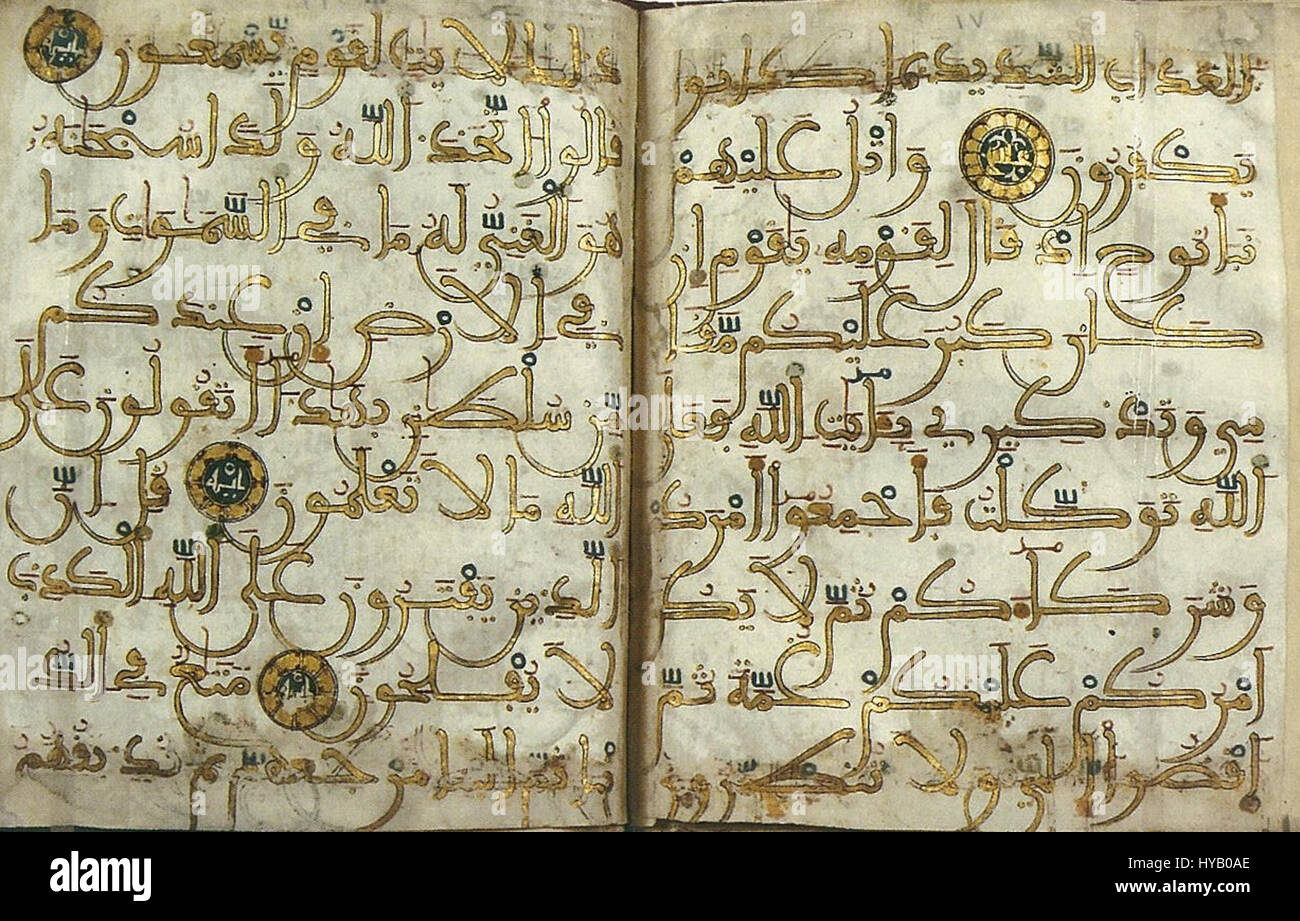 العذاب الشديد بما كانوا
يكفرون واتل عليهم
نبا نوح اذ قال لقومه يقوم ان
كان كبر عليكم مقا
مي وتذكيري بايت الله فعلى
الله توكلت فاجمعوا امركم
وشركاكم ثم لا يكن
امركم عليكم غمة ثم
اقضوا الي ولا تنظرون
ذلك لايت لقوم يسمعون
قالوا اتخذ الله ولدا سبحنه
هو الغني له ما في السموات وما
في الارض ان عندكم
من سلطن بهذا اتقولون على
الله ما لا تعلمون قل ان
الذين يفترون على الله الكذب
لا يفلحون متع في الد
نيا ثم الينا مرجعهم ثم نذيقهم
alamy stock photo
HYB0AE
www.alamy.com